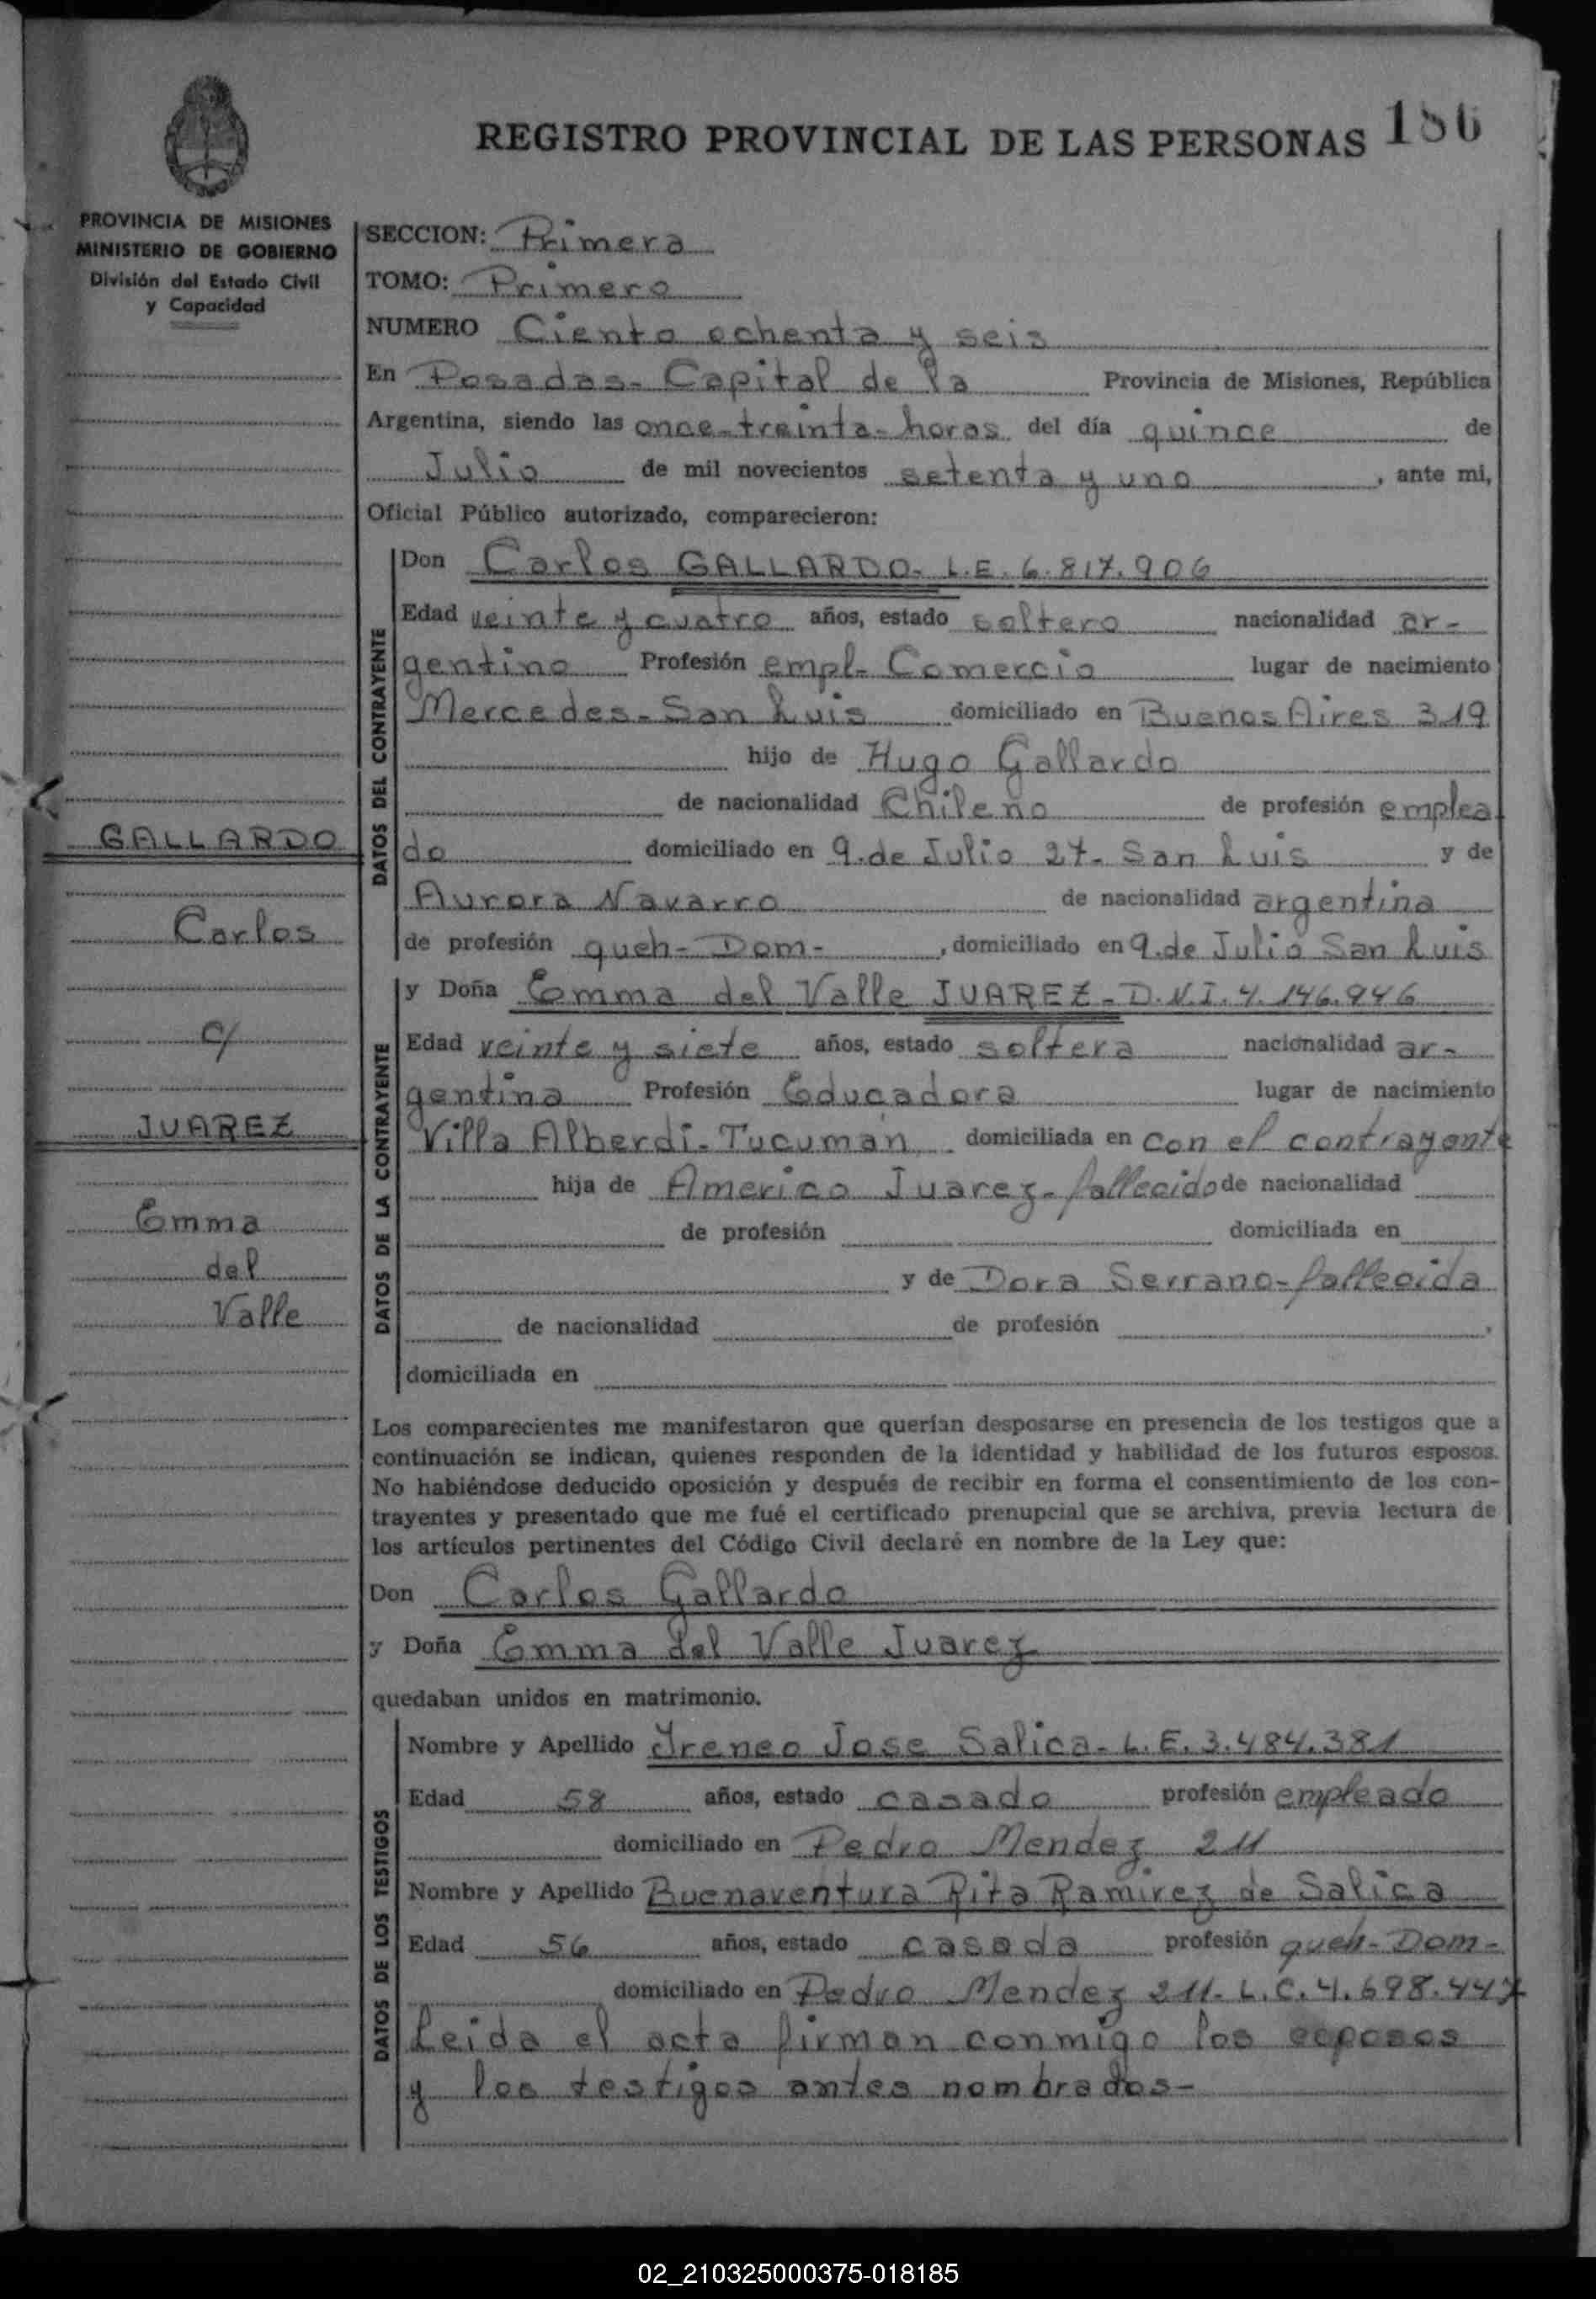 REGISTRO PROVINCIAL DE LAS PERSONAS 186
PROVINCIA DE MISIONES
MINISTERIO DE GOBIERNO
División del Estado Civil
y Capacidad
GALLARDO
Carlos
c/
JUAREZ
Emma
del
Valle
SECCION: Primera
TOMO: Primero
NUMERO Ciento ochenta y seis
En Posadas- Capital de la Provincia de Misiones, República
Argentina, siendo las once-treinta-horas del día quince de
Julio de mil novecientos setenta y uno, ante mi,
Oficial Público autorizado, comparecieron:
DATOS DEL CONTRAYENTE
Don Carlos GALLARDO- L.E. 6.817.906
Edad veinte y cuatro años, estado soltero nacionalidad ar-
gentino Profesión empl- Comercio lugar de nacimiento
Mercedes-San Luis domiciliado en Buenos Aires 319
hijo de Hugo Gallardo
de nacionalidad Chileno de profesión emplea
do domiciliado en 9.de Julio 27- San Luis y de
Aurora Navarro de nacionalidad argentina
de profesión queh-Dom-, domiciliado en 9.de Julio San Luis
DATOS DE LA CONTRAYENTE
y Doña Emma del Valle JUAREZ-D.N.I.4.146.946
Edad veinte y siete años, estado soltera nacionalidad ar-
gentina Profesión Educadora lugar de nacimiento
Villa Alberdi-Tucuman domiciliada en con el contrayente
hija de Americo Juarez-fallecido de nacionalidad
de profesión domiciliada en
y de Dora Serrano-fallecida
de nacionalidad de profesión ,
domiciliada en
Los comparecientes me manifestaron que querían desposarse en presencia de los testigos que a
continuación se indican, quienes responden de la identidad y habilidad de los futuros esposos.
No habiéndose deducido oposición y después de recibir en forma el consentimiento de los con-
trayentes y presentado que me fué el certificado prenupcial que se archiva, previa lectura de
los artículos pertinentes del Código Civil declaré en nombre de la Ley que:
Don Carlos Gallardo
y Doña Emma del Valle Juarez
quedaban unidos en matrimonio.
DATOS DE LOS TESTIGOS
Nombre y Apellido Ireneo Jose Salica- L.E. 3.484.381
Edad 58 años, estado casado profesión empleado
domiciliado en Pedro Mendez 211
Nombre y Apellido Buenaventura Rita Ramirez de Salica
Edad 56 años, estado casada profesión queh-Dom-
domiciliado en Pedro Mendez 211-L.C.4.698.447
Leida el acta firman conmigo los esposos
y los testigos antes nombrados-
02_210325000375-018185